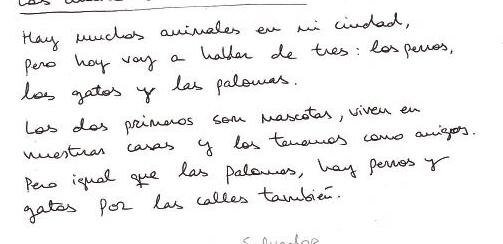 Hay muchos animales en mi ciudad,
pero hoy voy a hablar de tres: los perros,
los gatos y las palomas.
Los dos primeros son mascotas, viven en
nuestras casas y los tenemos como amigos.
Pero igual que las palomas, hay perros y
gatos por las calles también.